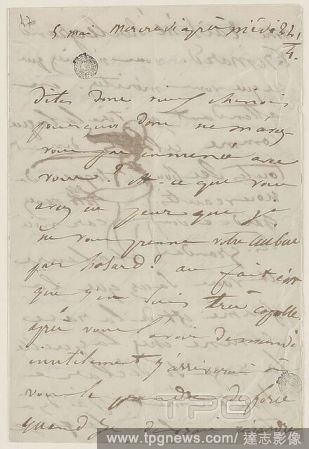 47
5 mai Mercredi après midi 2h 1/4.
dites donc chinois
pourquoi donc ne m'avez
vous pas emmenée avec
vous? Est-ce que vous
avez eu peur que je
ne vous prenne votre
par hasard? au fait c'est
que j'en suis très capable
après vous l'avoir demandé
inutilement j'arriverai à
vous le prendre de force
quand je
TPG
www.tpgnews.com/達志影像